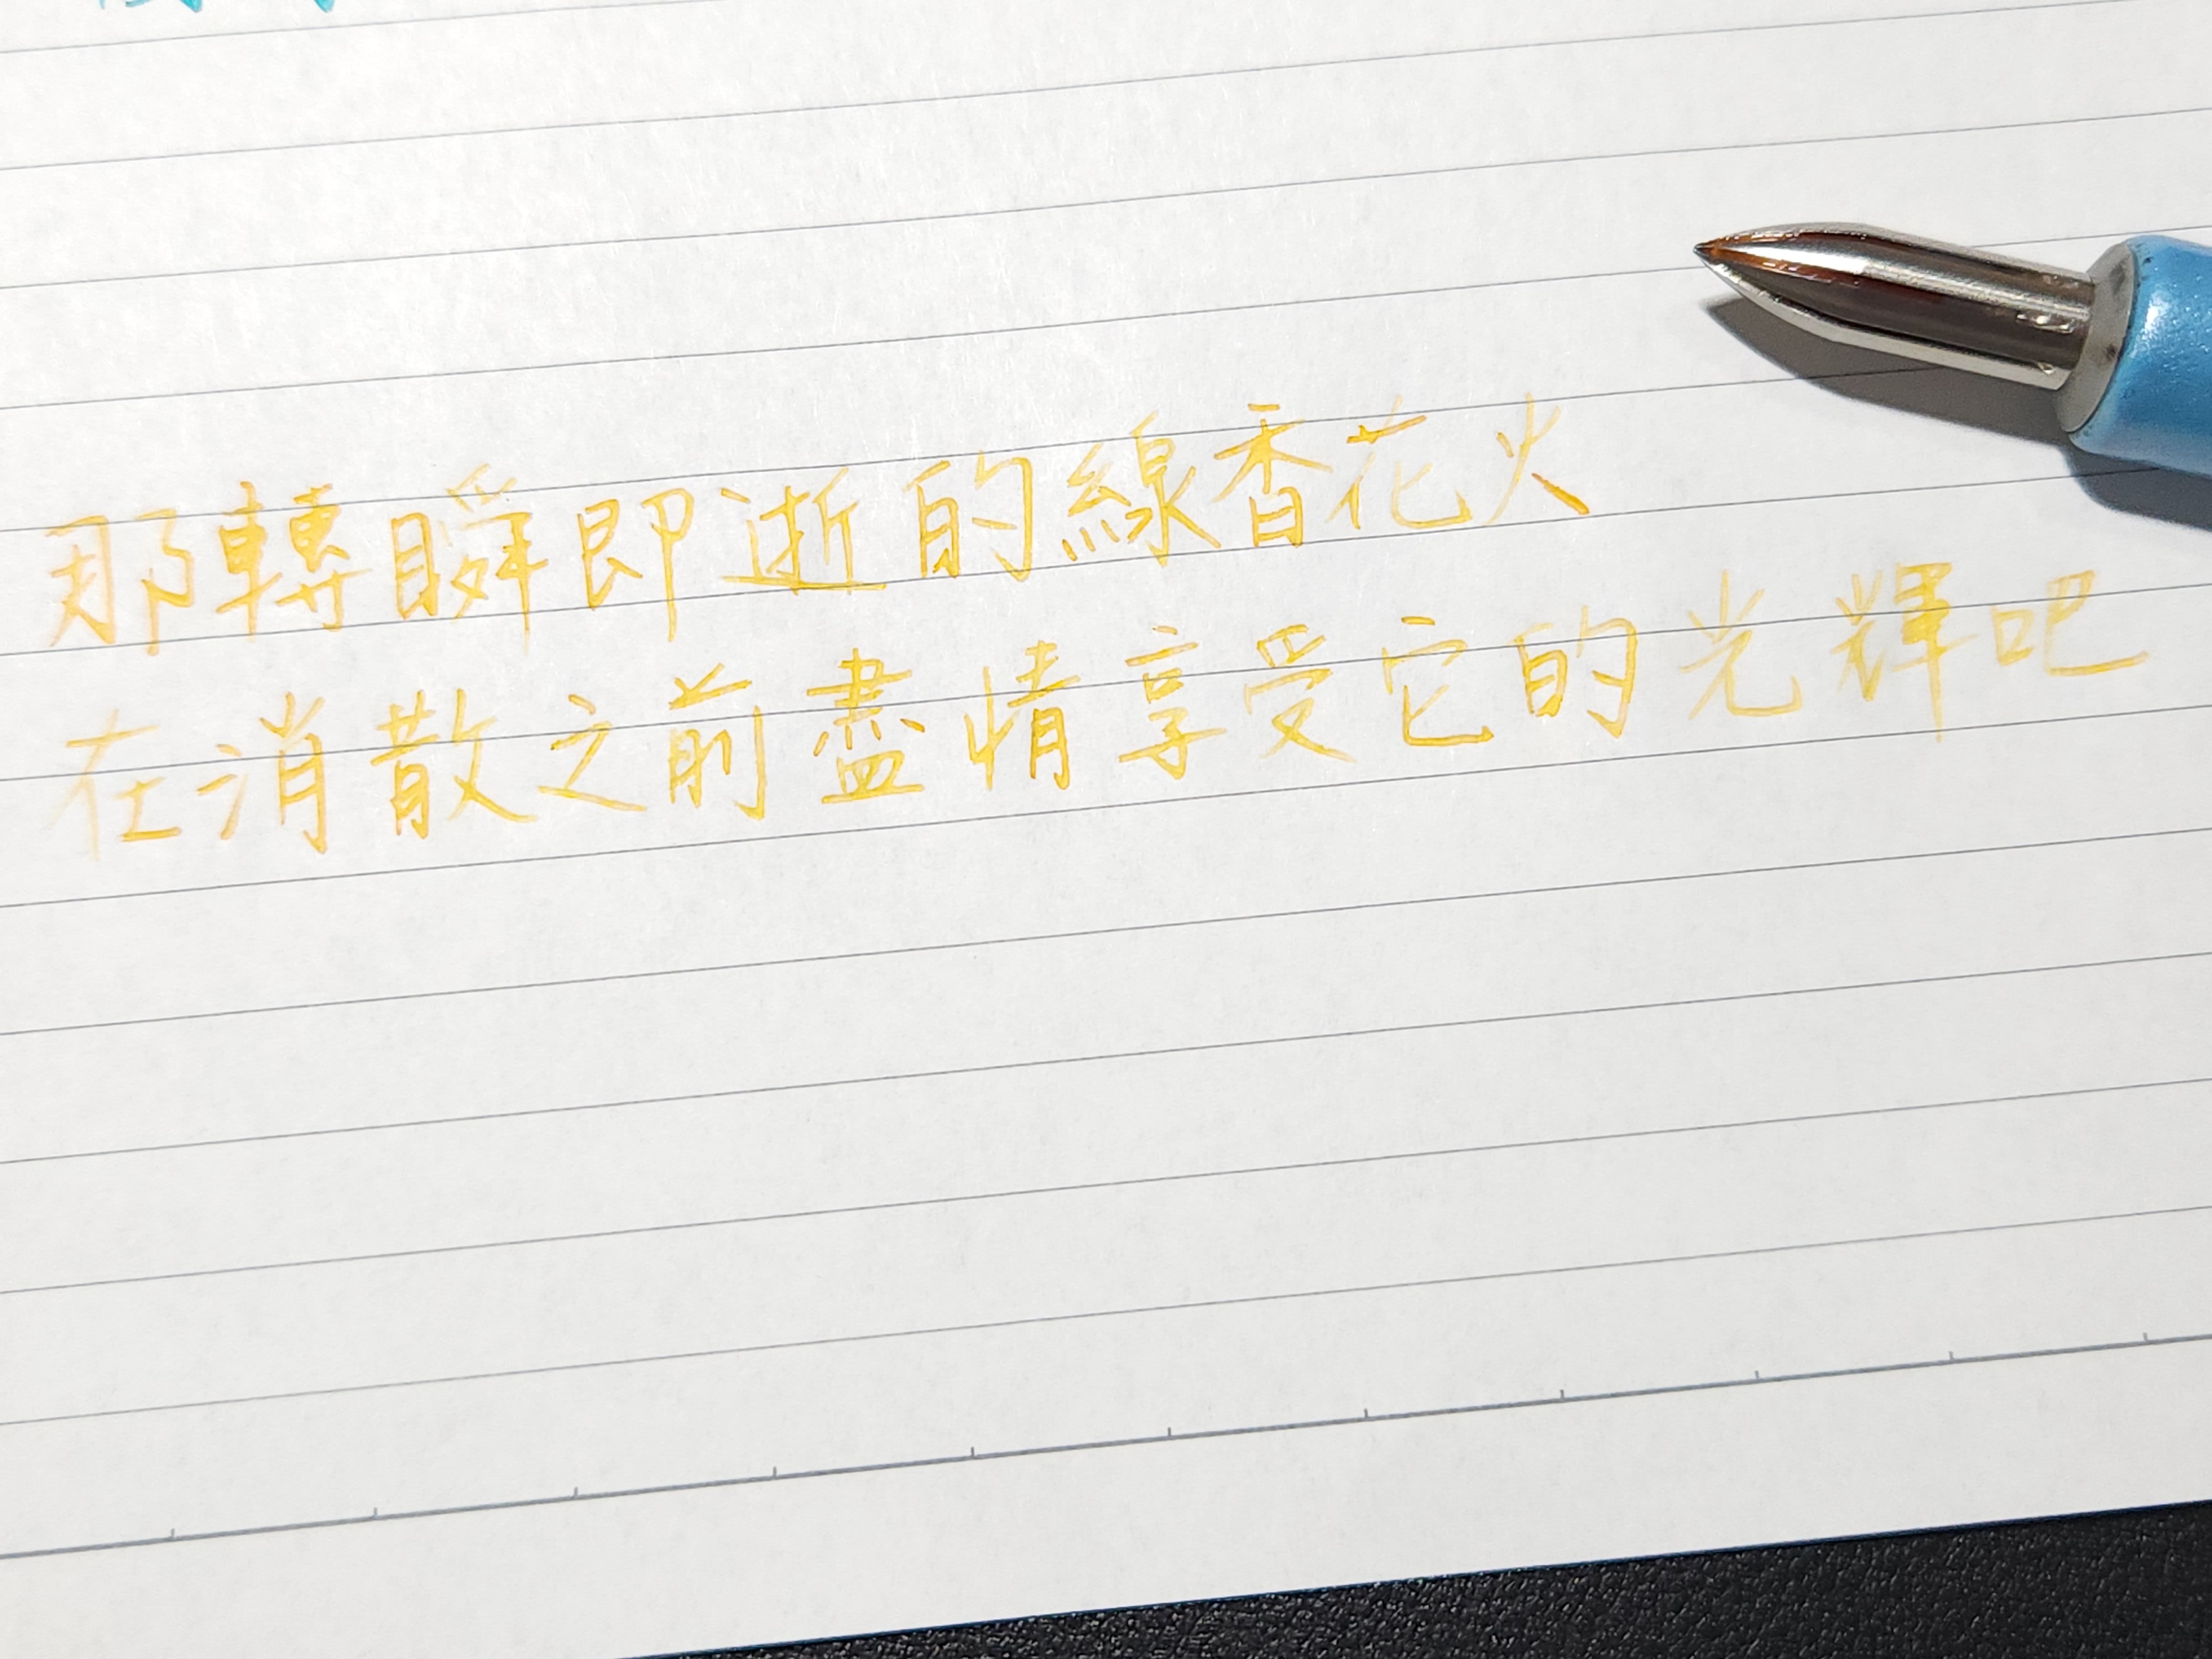 那轉瞬即逝的線香花火
在消散之前盡情享受它的光輝吧